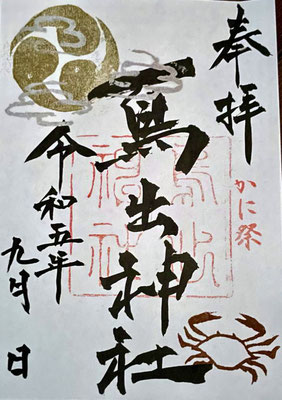 奉拝
かに祭
出神社
令和五年
九月 日